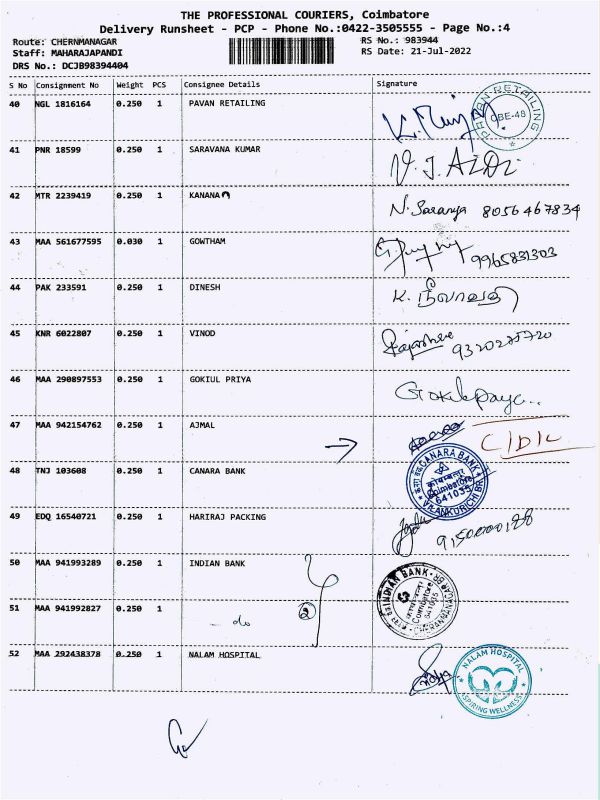 THE PROFESSIONAL COURIERS, Coimbatore
Delivery Runsheet - PCP - Phone No.:0422-3505555 - Page No.:4
Route: CHERNMANAGAR
Staff: MAHARAJAPANDI
DRS No.: DCJB98394404
RS No.: 983944
RS Date: 21-Jul-2022
S No Consignment No Weight PCS Consignee Details Signature
40 NGL 1816164 0.250 1 PAVAN RETAILING
PAVAN RETAILING CBE-48
41 PNR 18599 0.250 1 SARAVANA KUMAR
42 MTR 2239419 0.250 1 KANANA N. Saranya 8056467834
43 MAA 561677595 0.030 1 GOWTHAM 9965831303
44 PAK 233591 0.250 1 DINESH K. நீலாவதி
45 KNR 6022807 0.250 1 VINOD Rajashree 9320225720
46 MAA 290897553 0.250 1 GOKIUL PRIYA
47 MAA 942154762 0.250 1 AJMAL
48 TNJ 103608 0.250 1 CANARA BANK
CANARA BANK Coimbatore 641035 VILANKURICHI BR
49 EDQ 16540721 0.250 1 HARIRAJ PACKING
50 MAA 941993289 0.250 1 INDIAN BANK
INDIAN BANK Coimbatore 641035
51 MAA 941992827 0.250 1 - do 2
52 MAA 292438378 0.250 1 NALAM HOSPITAL
NALAM HOSPITAL ASPIRING WELLNESS